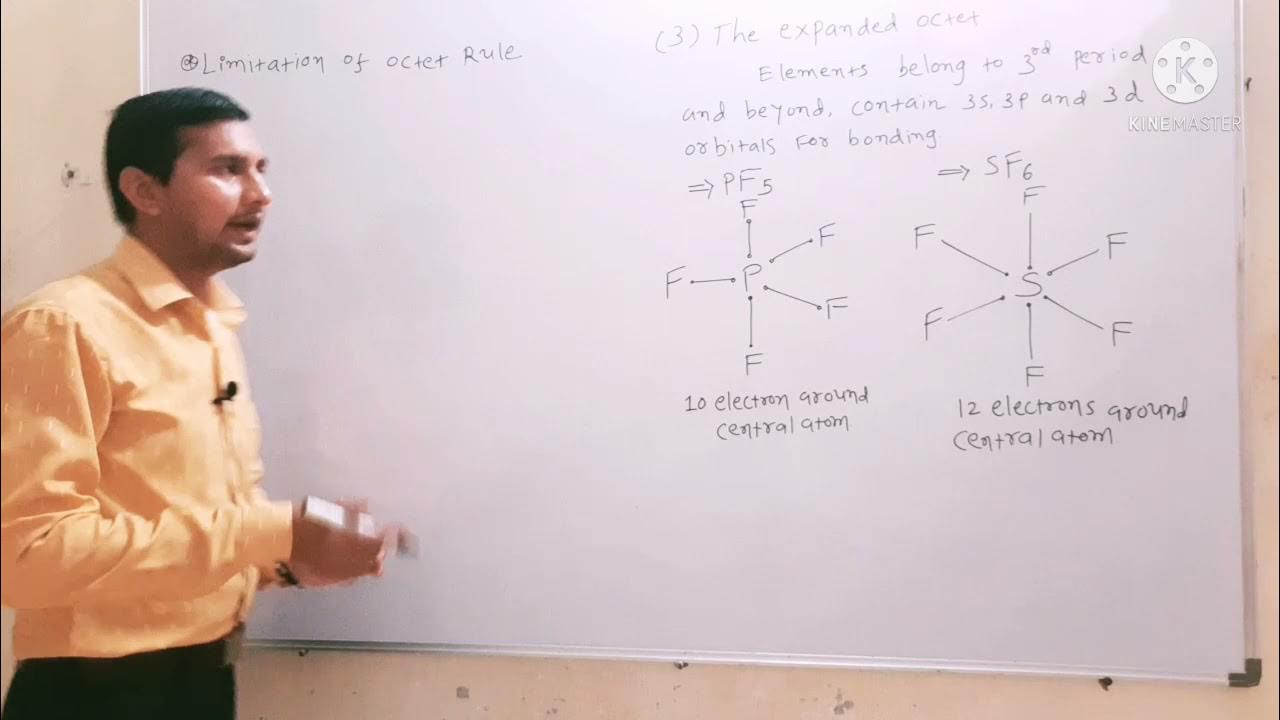 ⊛ Limitation of octet Rule
(3) The expanded octet
Elements belong to 3rd period
and beyond, contain 3s, 3p and 3d
orbitals for bonding.
⇒ PF5
F
F
F P
F
F
10 electron around
central atom
⇒ SF6
F
F F
S
F F
F
12 electrons around
central atom
K
KINEMASTER